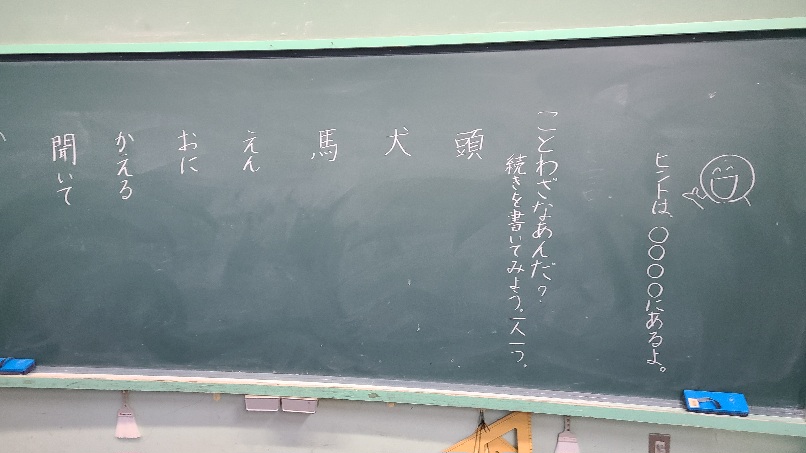 ヒントは、〇〇〇〇にあるよ。
ことわざなあんだ?
続きを書いてみよう。一人一つ。
頭
犬
馬
えん
おに
かえる
聞いて